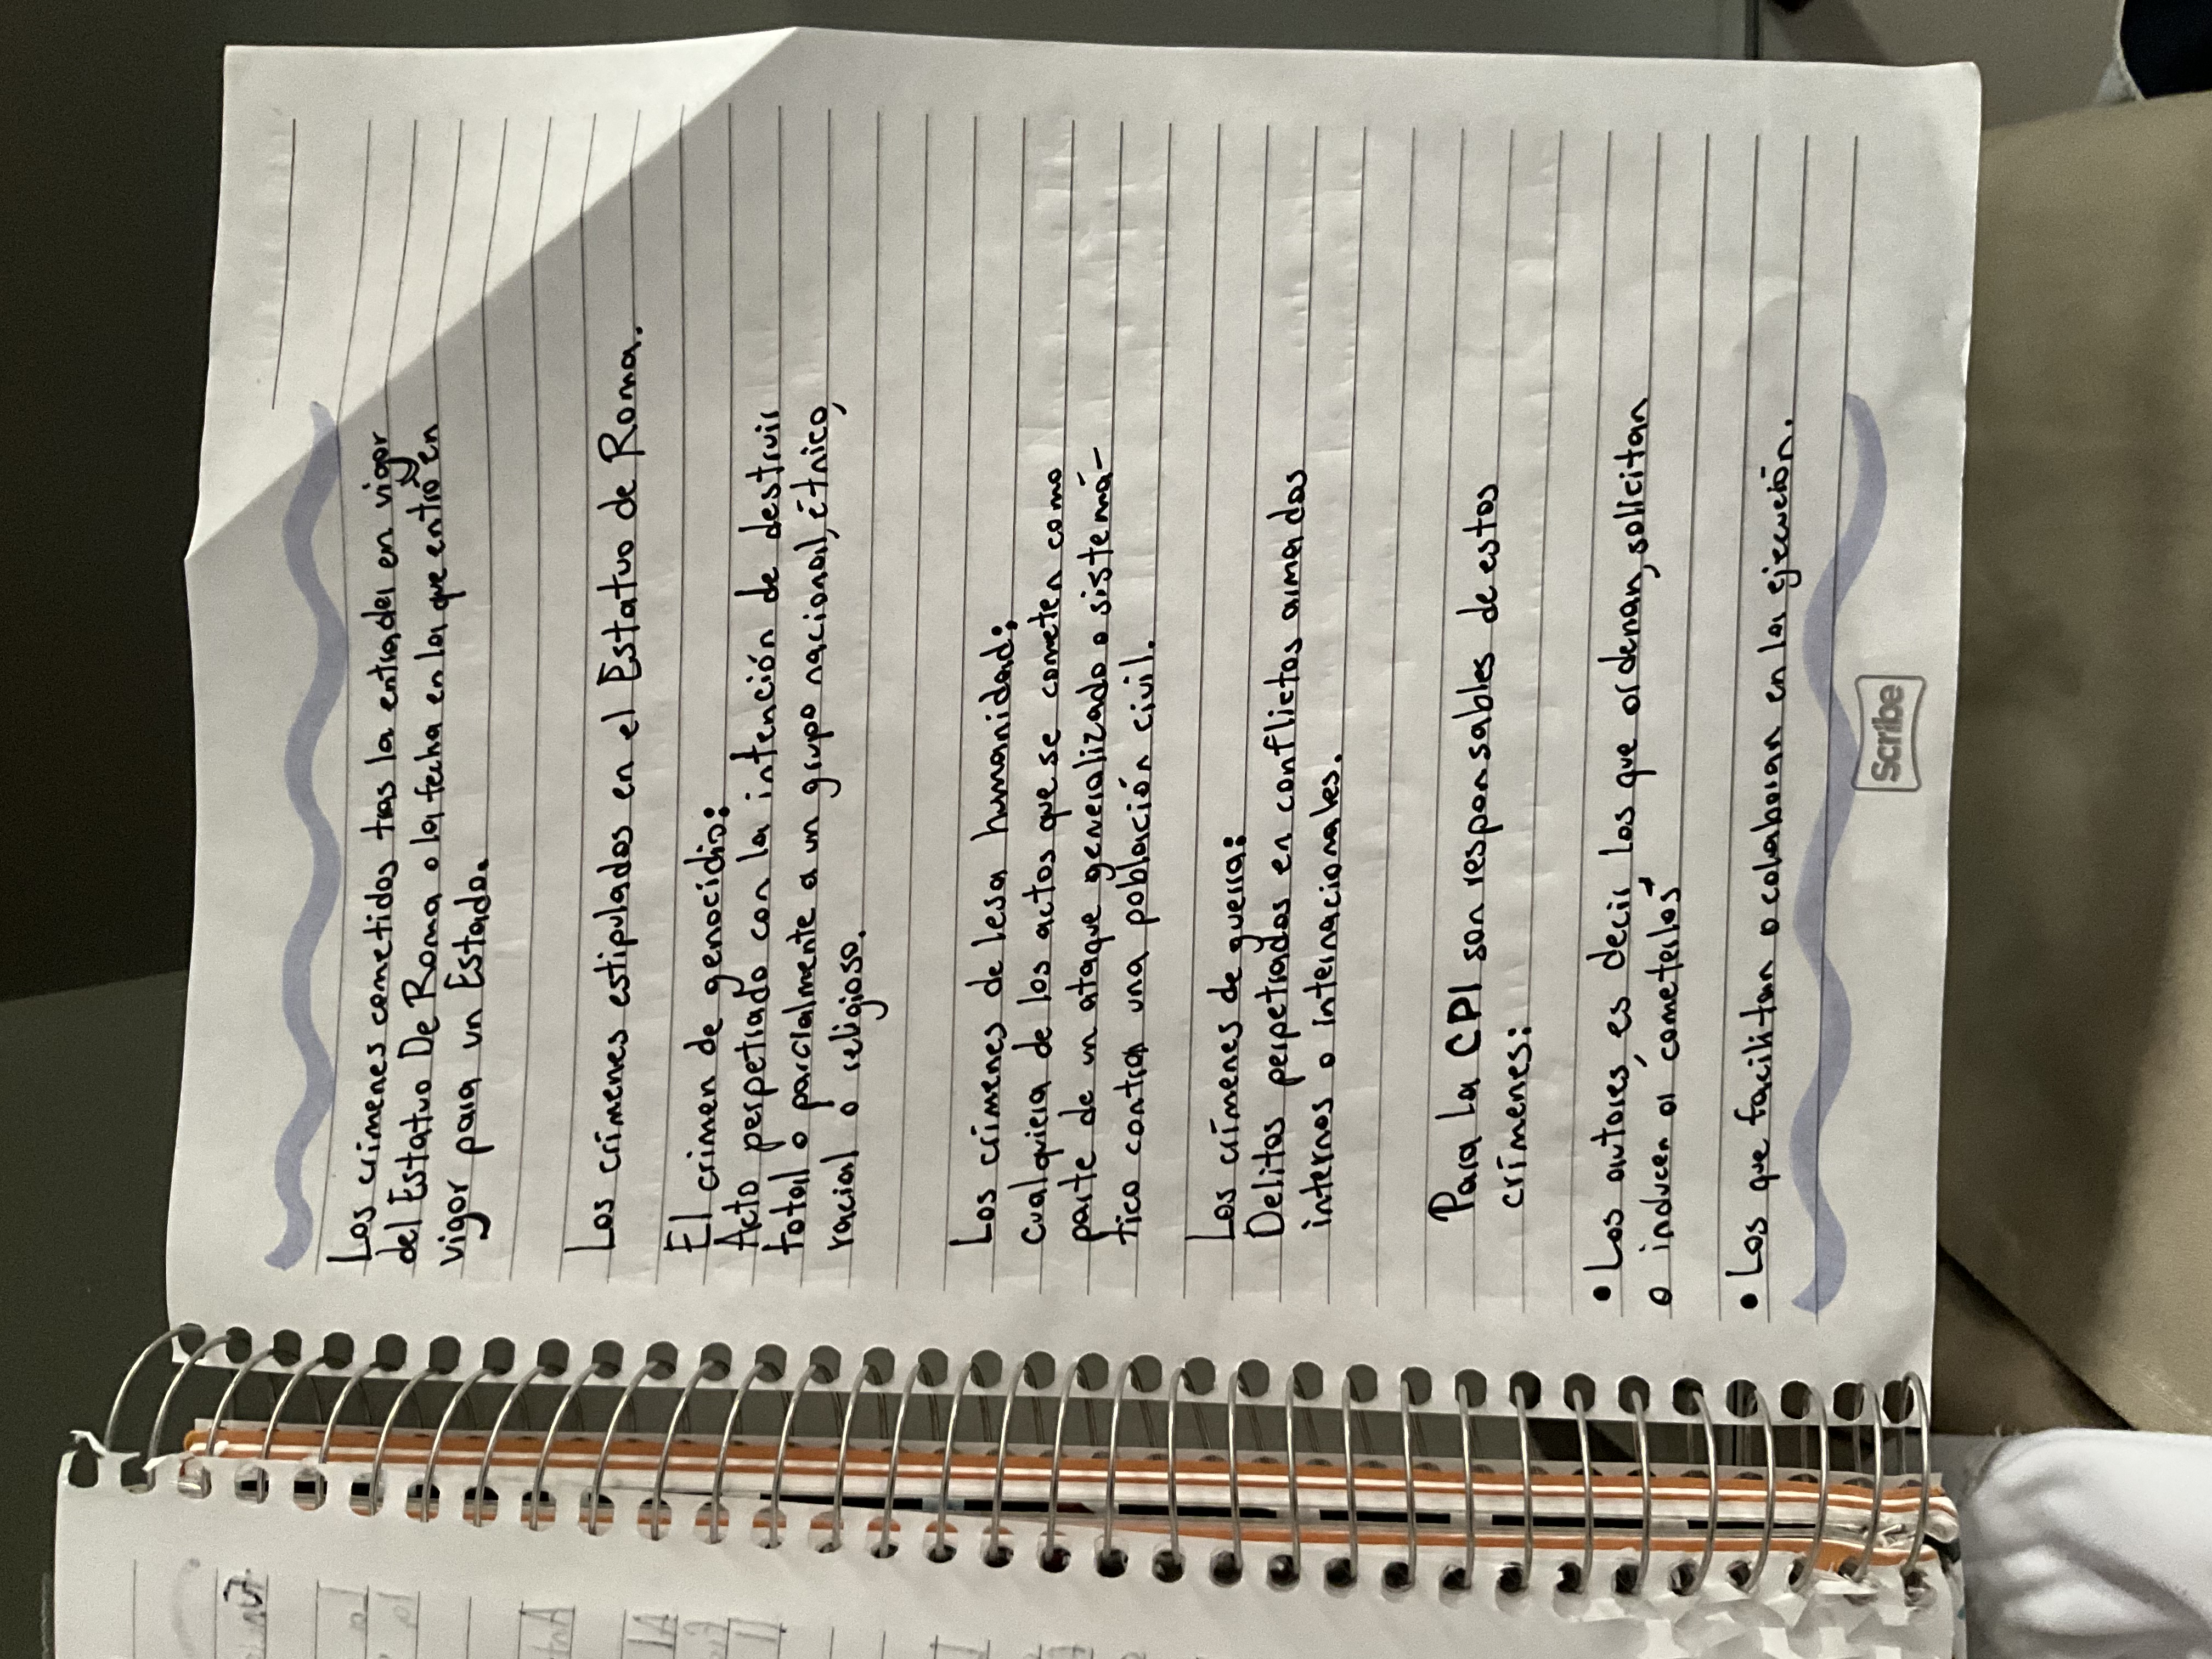 Los crímenes cometidos tras la entrada en vigor
del Estatuo De Roma o la fecha en la que entró en
vigor para un Estado.
Los crímenes estipulados en el Estatuo de Roma.
El crimen de genocidio:
Acto perpetrado con la intención de destruir
total o parcialmente a un grupo nacional, étnico,
racial o religioso.
Los crímenes de lesa humanidad:
cualquiera de los actos que se cometen como
parte de un ataque generalizado o sistemá-
tico contra una población civil.
Los crímenes de guerra:
Delitos perpetrados en conflictos armados
internos o internacionales.
Para la CPI son responsables de estos
crímenes:
• Los autores, es decir los que ordenan, solicitan
o inducen a cometerlos
• Los que facilitan o colaboran en la ejecución.
Scribe